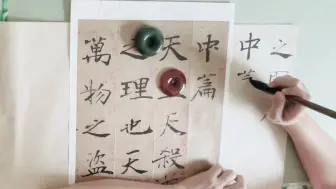 之
中
中篇
天天殺
之理也天
萬物之盜